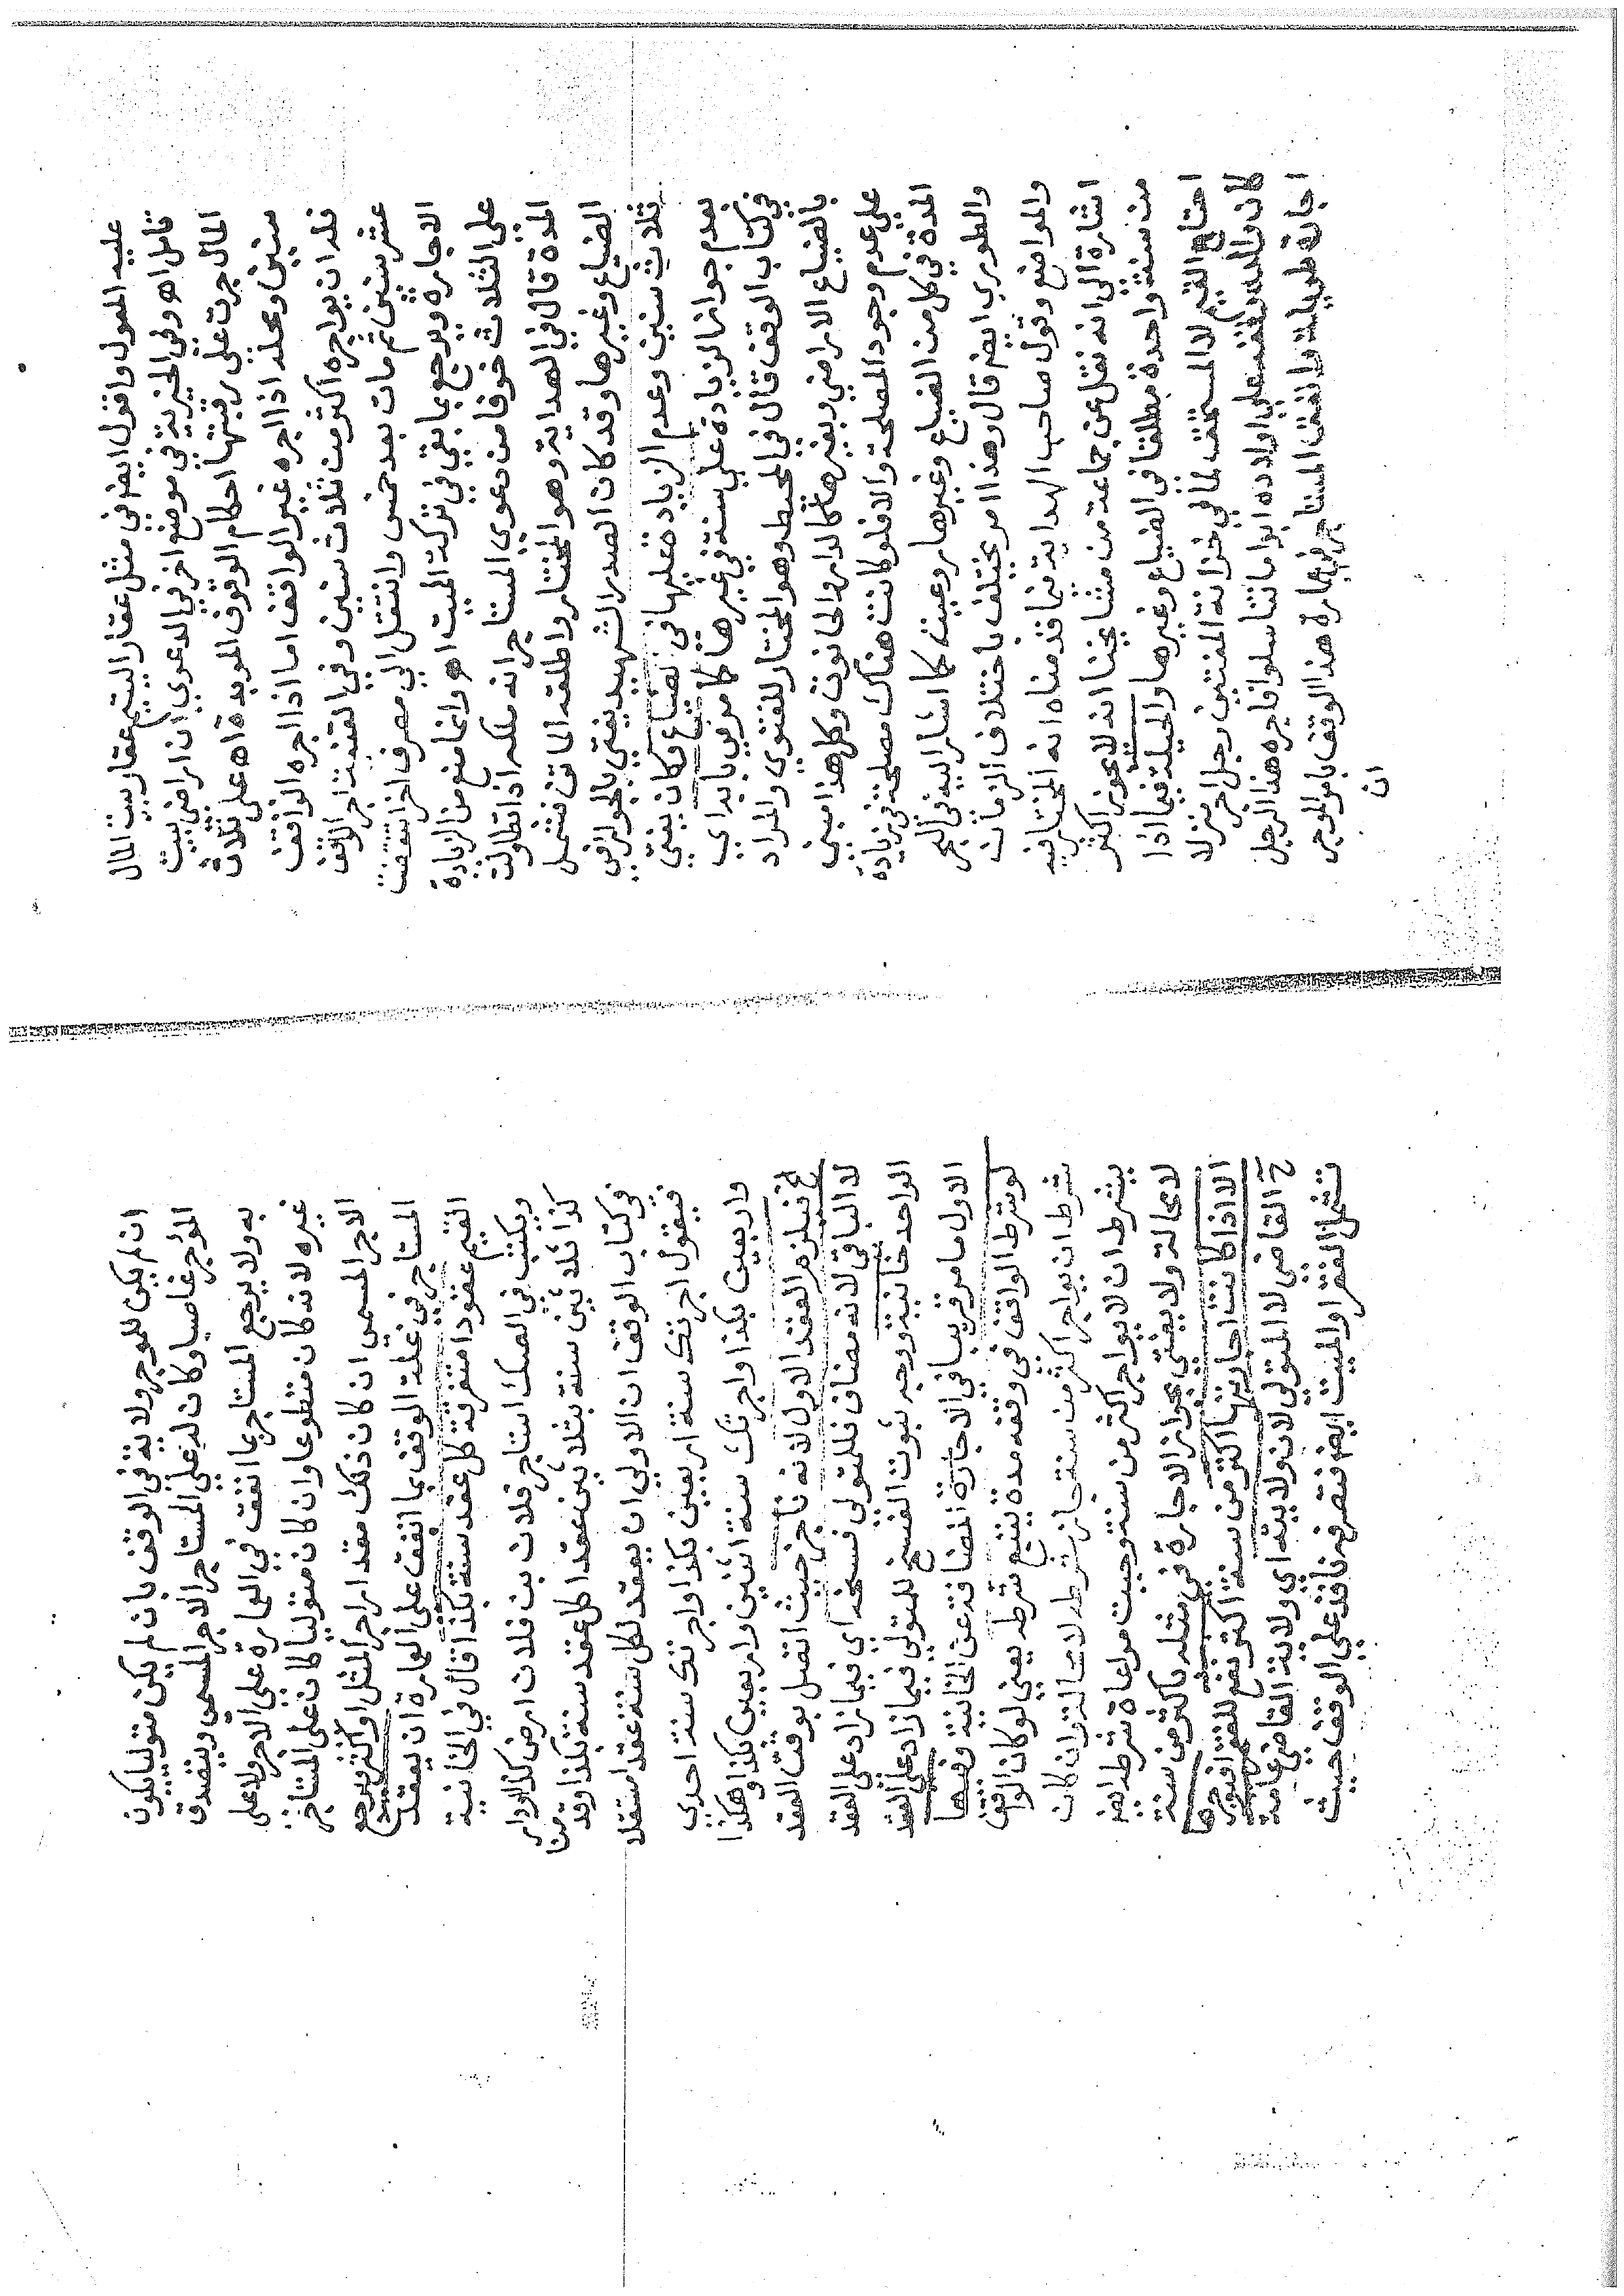 عليه المعول واقول ايضر في مثل عقار اليتيم عقار بيت المال
تامل اهـ وفي الخيرية في موضع اخر في الدعوي ان اراضي بيت
المال جرت علي رقبتها احكام الوقوف الموبدة اهـ علي ثلاث
سنين ومحله اذا اجره غير الواقف اما اذا اجره الواقف
فله ان يواجره اكثر من ثلاث سنين وفي القنية اجر الوقف
عشر سنين ثم مات بعد خمس وانتقل الي مصرف اخر انتقضت
الاجاره ويرجع بما بقي في تركة الميت اهـ وانما منع من الزيادة
علي الثلاث خوفا من دعوي المستاجر انه ملكه اذا تطاولت
المدة قال في الهداية وهو المختار واطلقه الماتن فشمل
الضياع وغيرها وقد كان الصدر الشهيد يفتي بالجواز في
ثلاث سنين وعدم الزيادة عليها في الضياع وكان يفتي
بعدم جواز الزيادة علي سنة في غيرها كما مر في باب اي
في كتاب الوقف قال في المحيط وهو المختار للفتوي والمراد
بالضياع الاراضي وبغيرها كالدار والحانوت وكل هذا مبني
علي عدم وجود المصلحة والا فلو كانت هناك مصلحة في زيادة
المدة في كل من الضياع وغيرها روعيت كما اشار اليه في البحر
والطوري ايضر قال وهذا امر يختلف باختلاف الزمان
والمواضع وقول صاحب الهداية فيما قدمناه انه المختار فيه
اشارة الي انه نقل عن جماعة من مشايخنا انه لا يجوز اكثر
من سنة واحدة مطلقا في الضياع وغيرها والحيلة فيما اذا
احتاج القيم لا المستحق لما في خزانة المفتين رجل اجر منزلا
كان والده وقفه علي اولاده ابدا ما تناسلوا فاجره هذا الرجل
اجارة طويلة وانفق المستاجر في عمارة هذا الوقف بامر الموجر
ان
ان لم يكن للموجر ولاية في الوقف بان لم يكن متوليا يكون
الموجر غاصبا وكان له علي المستاجر الاجر المسمي ويتصدق
به ولا يرجع المستاجر بما انفق في العمارة علي الاجر ولا علي
غيره لانه كان متطوعا وان كان متوليا كان علي المستاجر
الاجر المسمي ان كان ذلك مقدار اجر المثل او اكثر ويرجع
المستاجر في غلة الوقف بما انفق علي العمارة ان يعقد
القيم عقودا متفرقة كل عقد سنة بكذا قال في الخانية
ويكتب في الصك استاجر فلان بن فلان ارض كذا او دار
كذا ثلاثين سنة بثلاثين عقدا كل عقد سنة بكذا وقد منا
في كتاب الوقف ان الاولي ان يعقد لكل سنة عقدا مستقلا
فيقول اجرتك سنة اربعين بكذا واجرتك سنة احدي
واربعين بكذا واجرتك سنة اثنين واربعين بكذا وهكذا
فيلزم العقد الاول لانه ناجز حيث اتصل بوقت العقد
لا الباقي لانه مضاف فللمتولي فسخه اي فيما زاد علي العقد
الواحد خانية ووجه ثبوت الفسخ للمتولي فيما زاد علي العقد
الاول ما مر قريبا في الاجازة المضافة عن الخانية وفيها
لو شرط الواقف في وقفه مدة يتبع شرطه يعني لو كان الواقف
شرط ان يواجر اكثر من سنة جاز شرطه لا محالة وان كان
بشرط ان لا يواجر اكثر من سنة وجبت مراعاة شرطه ايضر
لا محالة ولا يفتي بجواز الاجارة في مثله باكثر من سنة
الا اذا كانت اجارتها اكثر من سنة اكثر نفع للفقرا فيوجرها
ح القاضي لا المتولي لان ولايته اي ولاية القاضي عامة
تشمل الفقرا والميت ايضر فتصرفه نافذ علي الوقف حيث